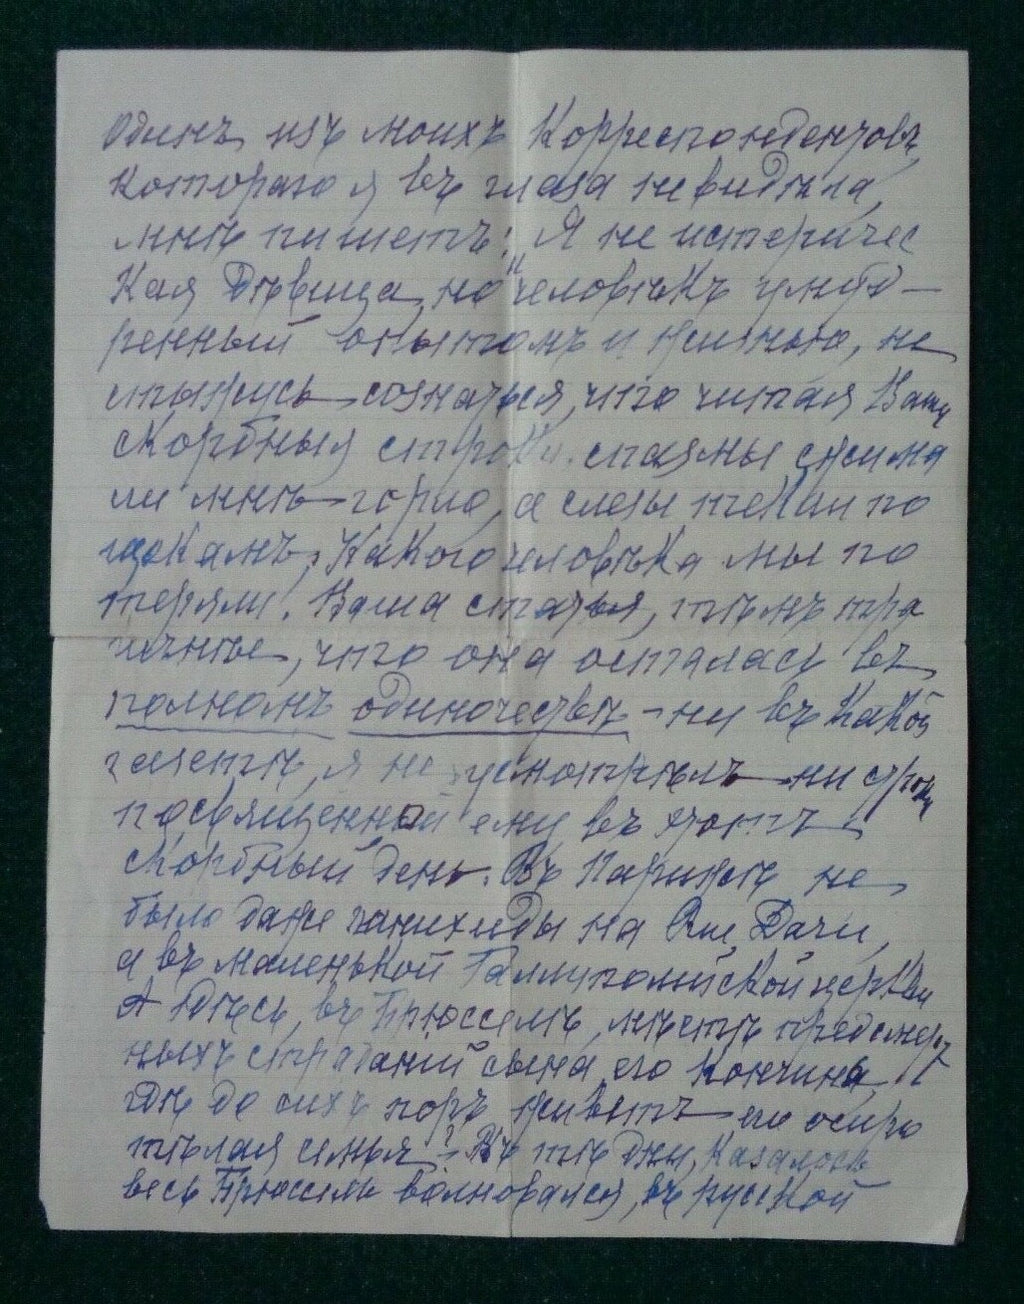 Одинъ изъ моихъ Корреспондентовъ,
котораго я въ глаза невидѣла,
мнѣ пишетъ: "Я не истеричес
кая Дѣвица, но человѣкъ умуд-
ренный опытомъ и жизнью, не
стыжусь сознаться, что читая Ваши
скорбныя строки спазмы сжима
ли мнѣ горло, а слезы текли по
щекамъ. Какого человѣка мы по
теряли. Ваша статья, тѣмъ тра
гичнѣе, что она осталась въ
полномъ одиночествѣ - ни въ какой
газетѣ, я не усмотрѣлъ ни строки
посвященной ему въ этотъ
скорбный день. Въ Парижѣ не
было даже панихиды на Рю Дачи,
а въ маленькой Галлиполійской церкви
А здѣсь, въ Брюсселѣ, мѣстѣ предсмерт
ныхъ страданій сына, его кончина,
гдѣ до сихъ поръ живетъ его осиро
тѣлая семья? Въ тѣ дни, казалось
весь Брюссель волновался, въ русской